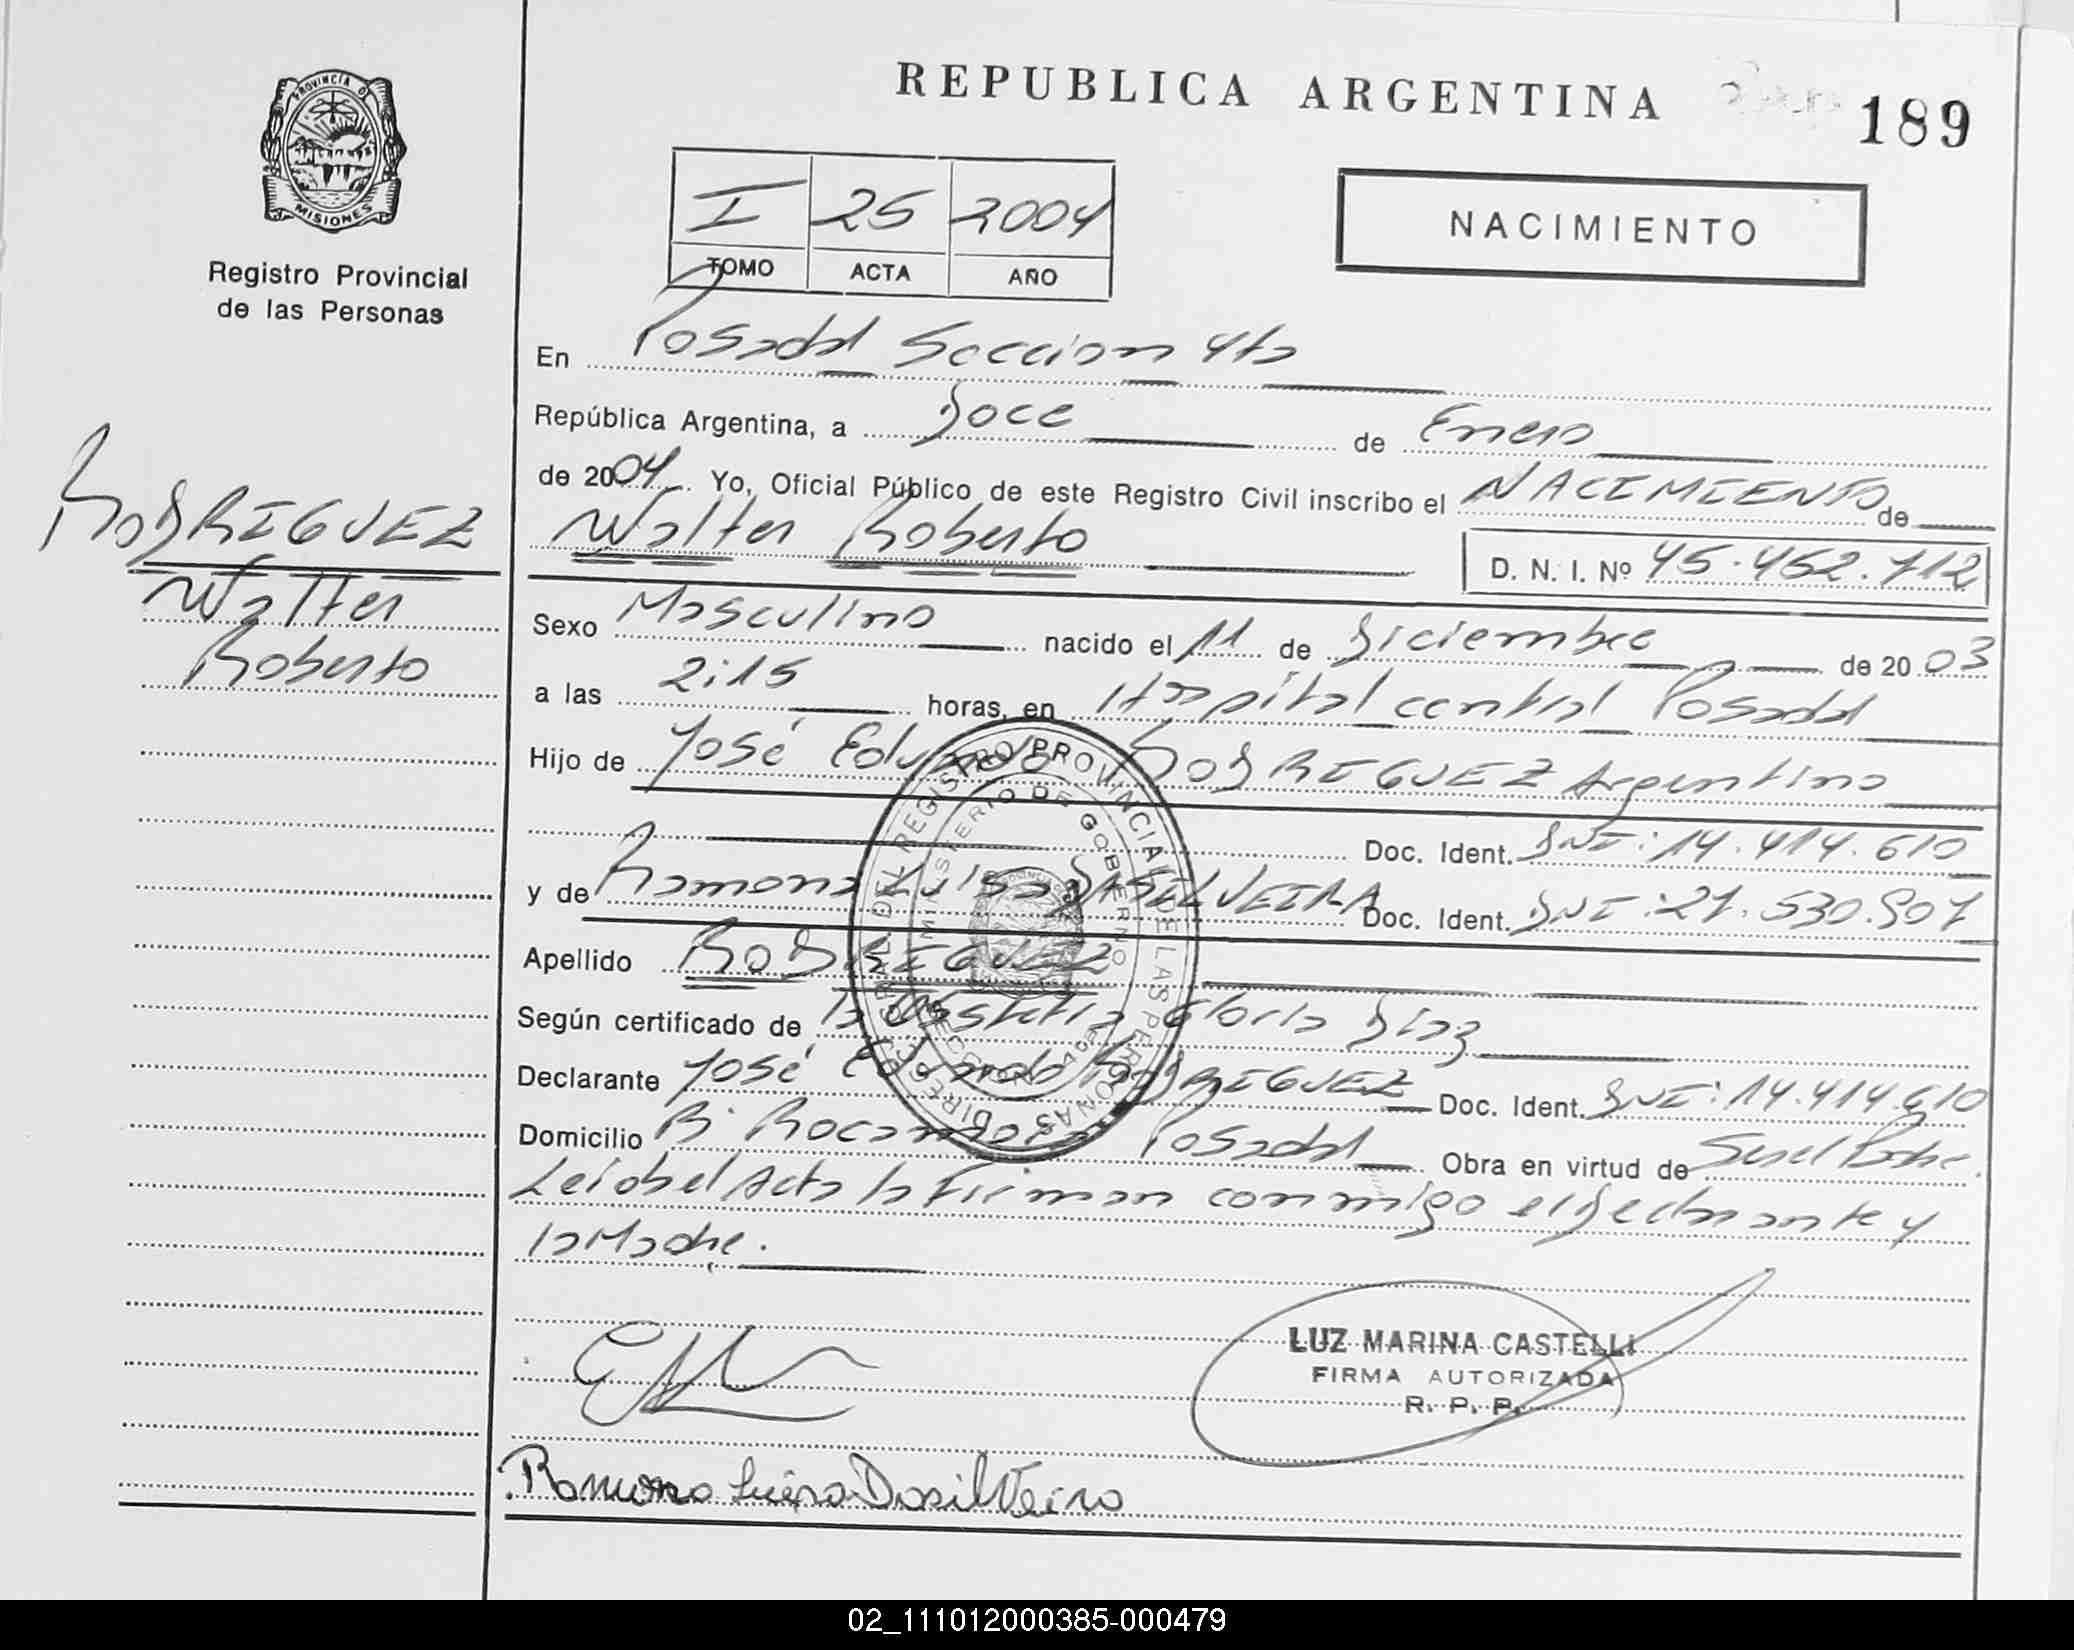 REPUBLICA ARGENTINA
189
PROVINCIA D
MISIONES
Registro Provincial
de las Personas
I 25 2004
TOMO ACTA AÑO
NACIMIENTO
En Posadas Seccion 4ta
República Argentina, a Doce de Enero
de 2004 Yo, Oficial Público de este Registro Civil inscribo el NACIMIENTO de
Walter Roberto D. N. I. Nº 45.452.712
RODRIGUEZ
Walter
Roberto
Sexo Masculino nacido el 11 de Diciembre de 20 03
a las 2:15 horas, en Hospital central Posadas
Hijo de José Eduardo RODRIGUEZ Argentino
Doc. Ident. DNI: 14.414.610
y de Ramona Luisa DASILVEIRA Doc. Ident. DNI: 21.530.907
Apellido RODRIGUEZ
Según certificado de la Obstetra Gloria Diaz
Declarante José Eduardo RODRIGUEZ Doc. Ident. DNI: 14.414.610
Domicilio Bº Rocamora Posadas Obra en virtud de Ser el Padre.
Leida el Acta la Firman conmigo el Declarante y
la Madre.
DIRECCION GRAL. DEL REGISTRO PROVINCIAL DE LAS PERSONAS
MINISTERIO DE GOBIERNO
LUZ MARINA CASTELLI
FIRMA AUTORIZADA
R. P. P.
Ramona Luisa Dasilveira
02_111012000385-000479